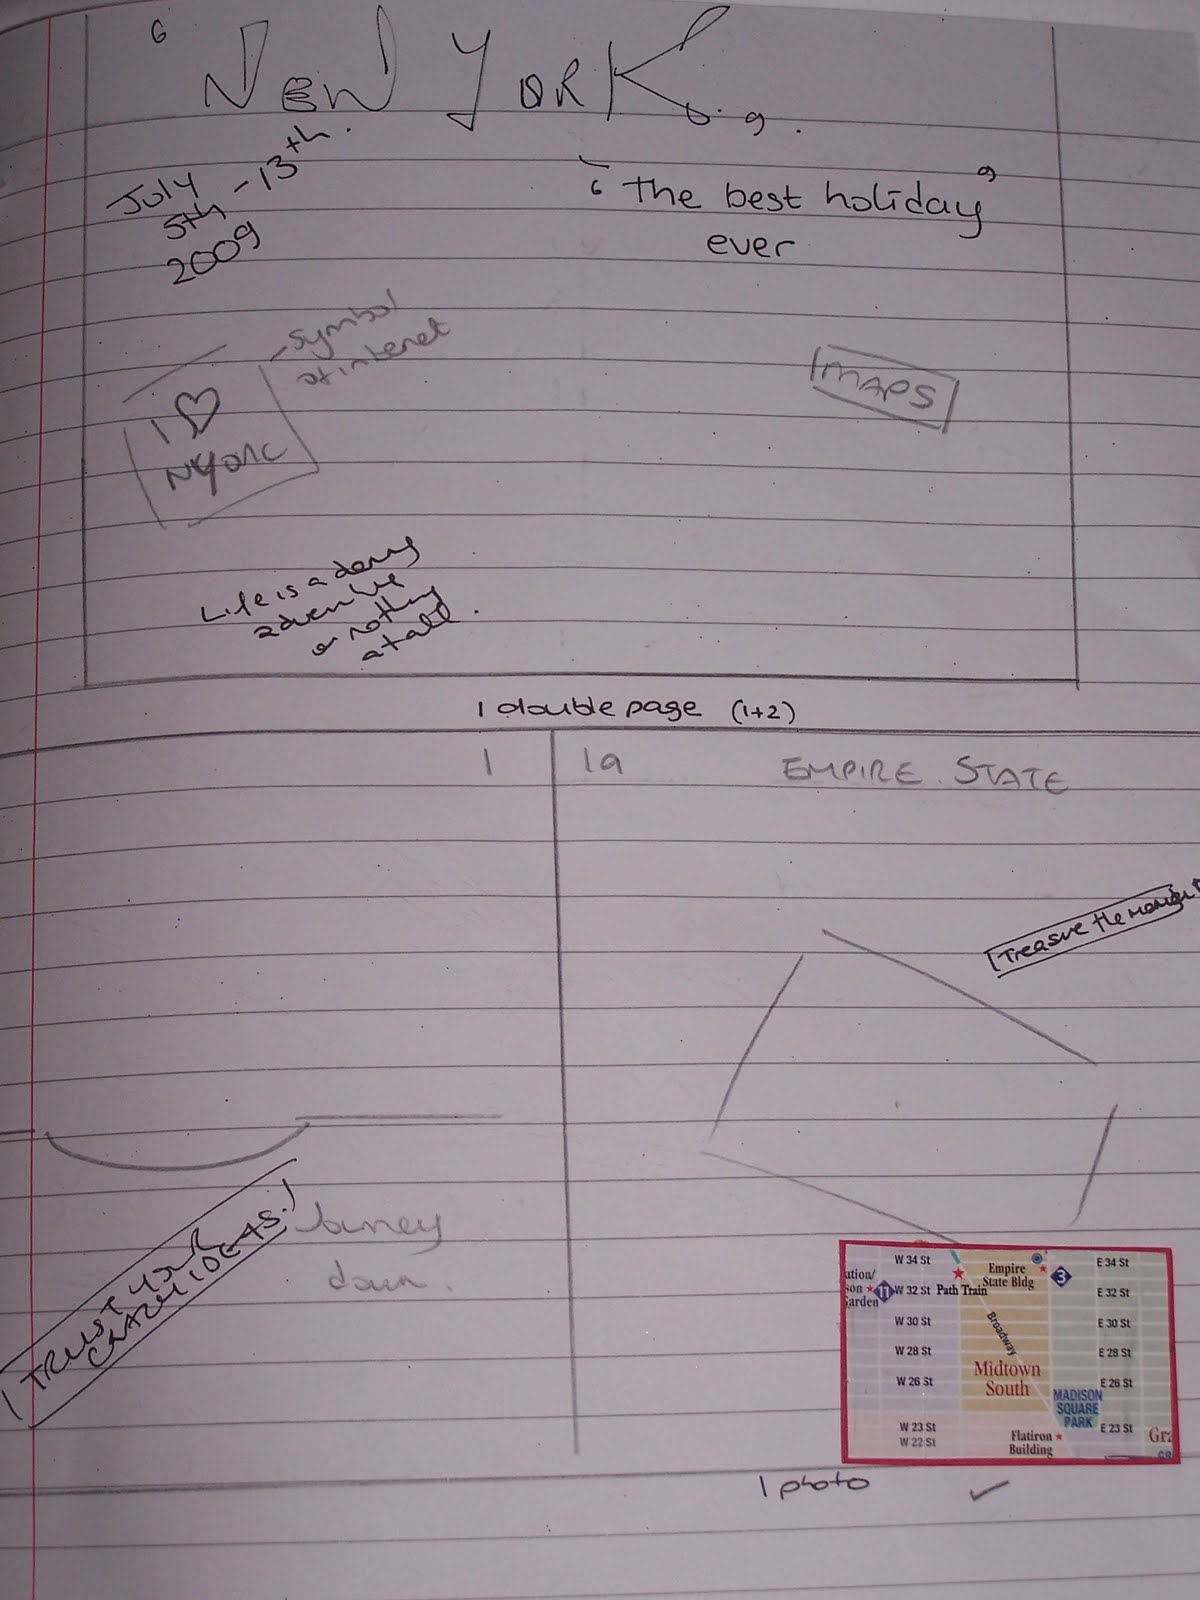 6 NEW YORK. 9.
July
5th - 13th.
2009
" The best holiday "
ever
- symbol
of internet
I ♡
NYORK
MAPS
Life is a daring
adventure
or nothing
at all.
1 double page (1+2)
1
1a
EMPIRE STATE
Treasure the moment
TRUST YOUR
CRAZY IDEAS.
down.
W 34 St
Empire
State Bldg
3
E 34 St
ation/
son
Garden
11
W 32 St
Path Train
E 32 St
W 30 St
Broadway
E 30 St
W 28 St
E 28 St
Midtown
South
W 26 St
E 26 St
MADISON
SQUARE
PARK
W 23 St
E 23 St
W 22 St
Flatiron
Building
Gra
1 photo ✓